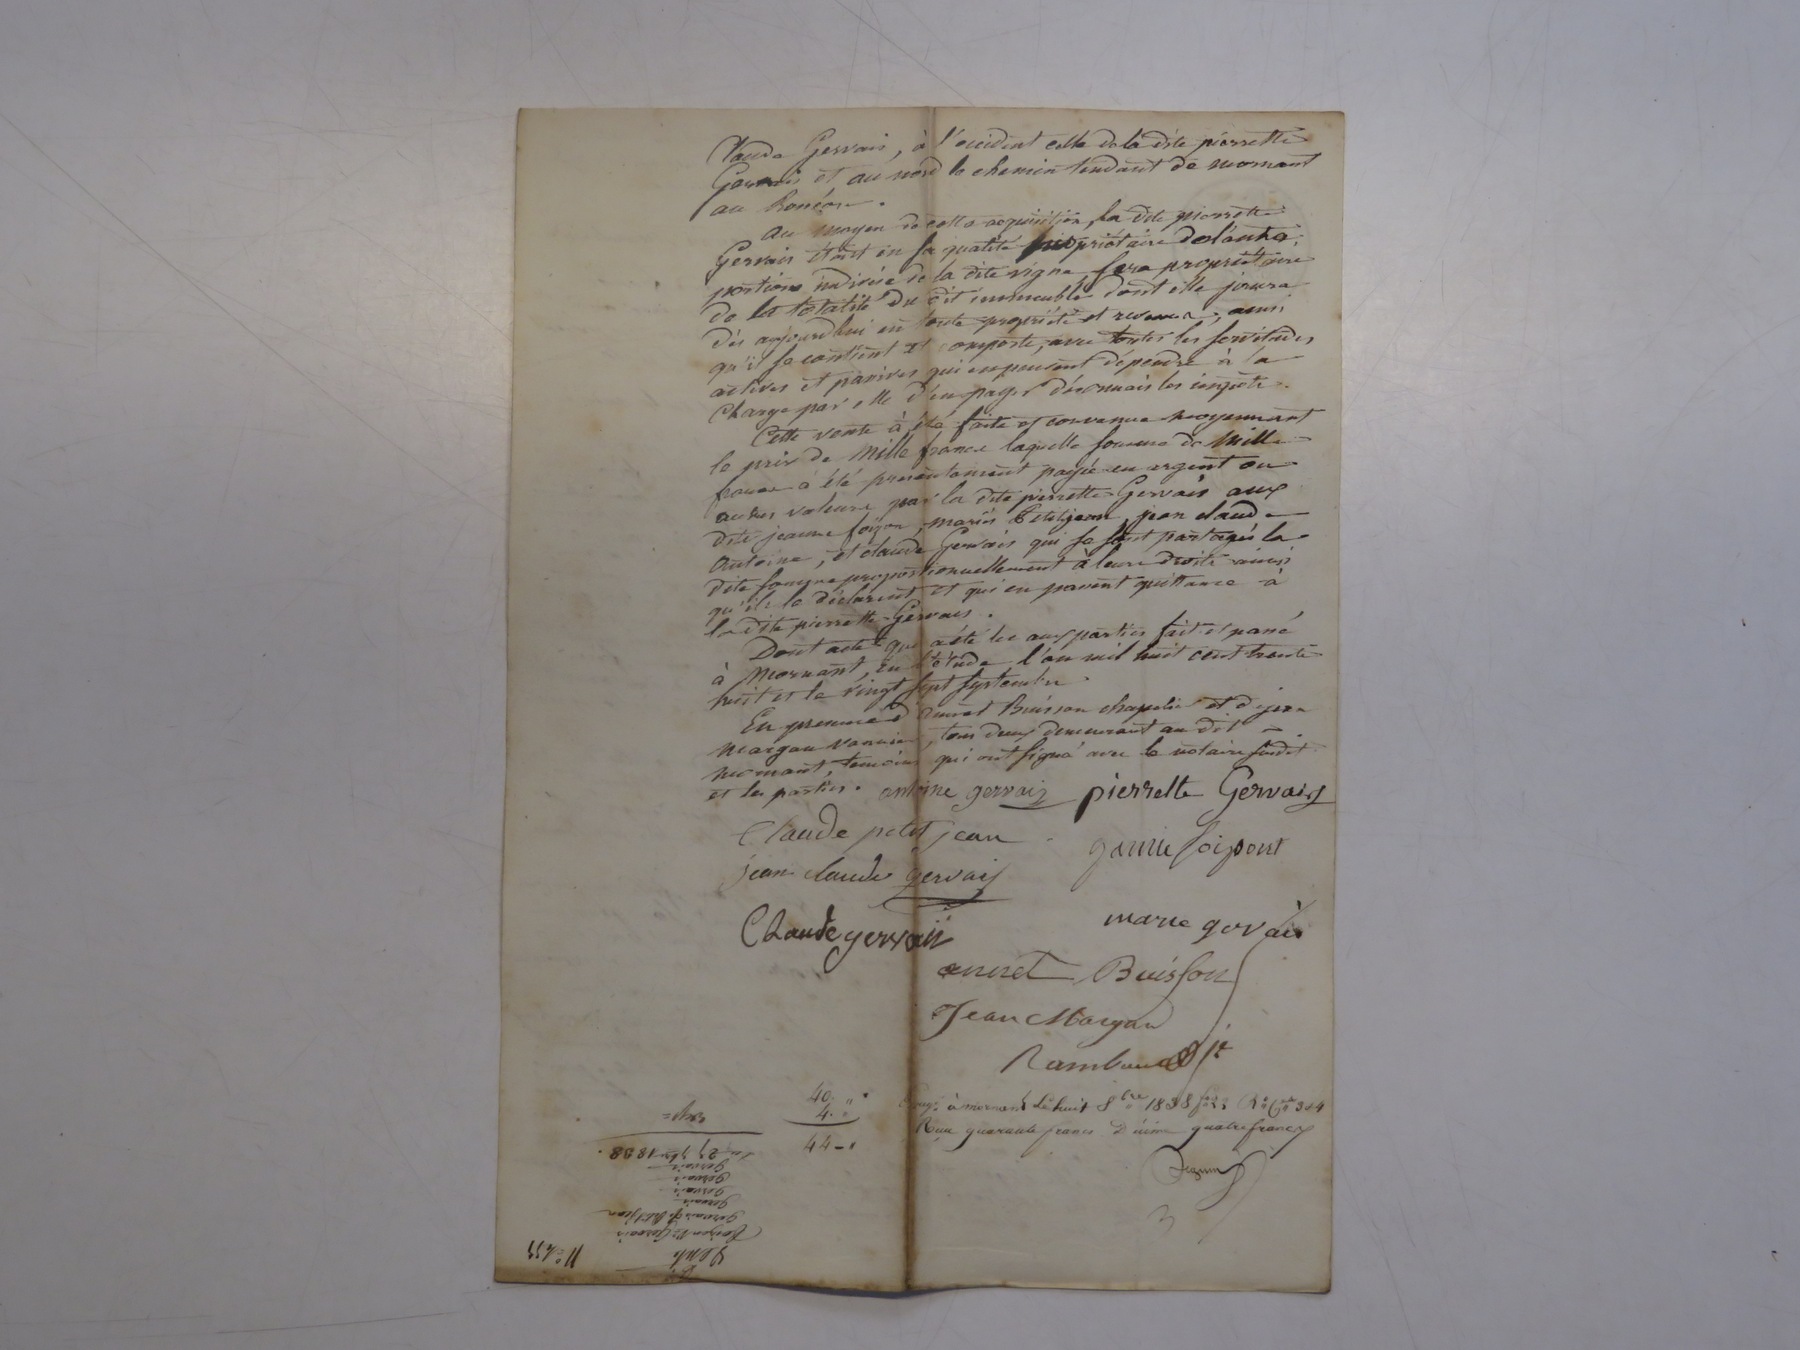 Claude Gervais, à l'occident celle de la dite pierrette
Gervais et au nord le chemin tendant de mornant
au
au moyen de cette acquisition, la dite pierrette
Gervais étant en sa qualité propriétaire de l'autre
portion indivise de la dite vigne sera propriétaire
de la totalité du dit immeuble dont elle jouira
dès aujourd'hui en toute propriété et revenus, ainsi
qu'il se contient et comporte, avec toutes les servitudes
actives et passives qui en peuvent dépendre à la
charge par elle d'en payer désormais les impôts.
Cette vente à été faite et convenue moyennant
le prix de Mille francs laquelle somme de Mille
francs a été présentement payée en argent ou
autres valeurs par la dite pierrette Gervais aux
dits jeanne foison, mariés Petitjean, jean claude
antoine, et claude Gervais qui se sont partagés la
dite somme proportionnellement à leurs droits ainsi
qu'ils le déclarent et qui en passent quittance à
la dite pierrette Gervais.
Dont acte qui a été lu aux parties fait et passé
à Mornant, en l'étude l'an mil huit cent trente
huit et le vingt sept septembre
En présence d'annet Buisson chapelier et de jean
margau vannier, tous deux demeurant au dit
mornant, temoins qui ont signé avec le notaire susdit
et les parties. antoine gervais pierrette Gervais
Claude petit jean
jean claude gervais
Claude gervais
marie gervais
annet Buisson
Jean Margau
Rambaud
40. "
4. "
44 - "
à mornant le huit 8bre 1838
Reçu quarante francs Dixième quatre francs
3
Vente
Gervais
Gervais & Petitjean
gervais
gervais
gervais
gervais
du 27 7bre 1838.
Exp=